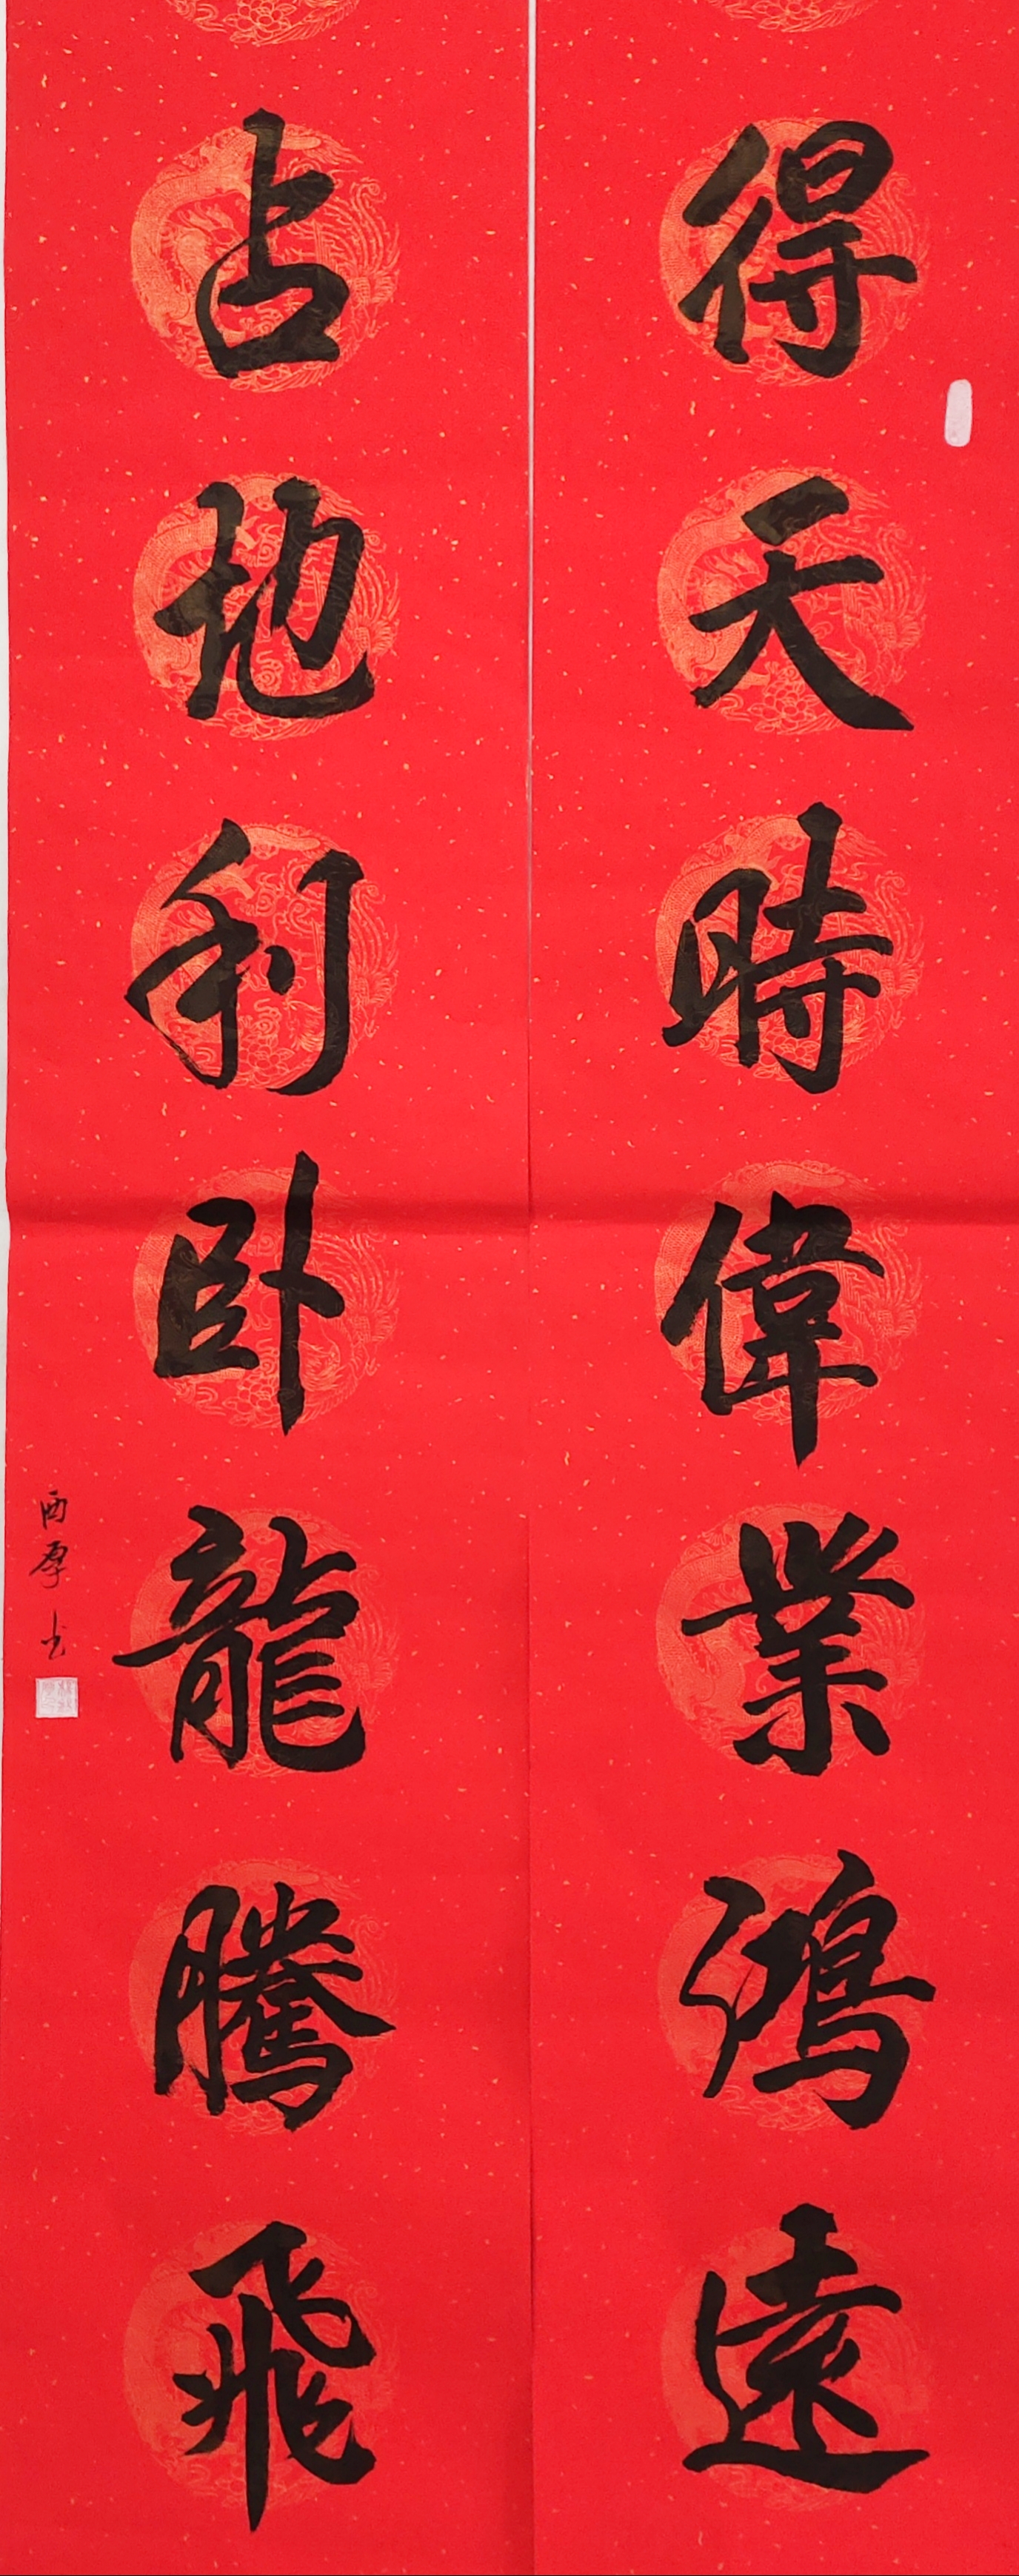 得天時偉業鴻遠
占地利卧龍騰飛
酉厚书